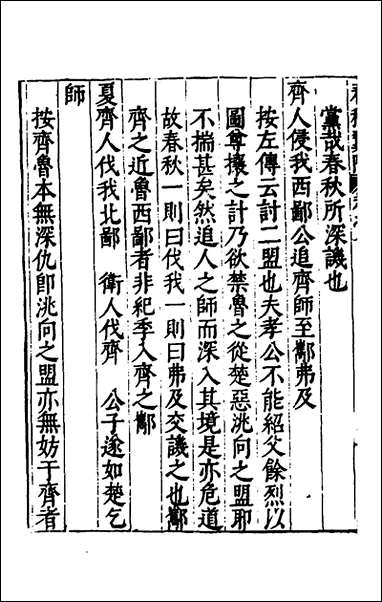 黨哉春秋所深譏也
齊人侵我西鄙公追齊師至酅弗及
按左傳云討二盟也夫孝公不能紹父餘烈以
圖尊攘之計乃欲禁魯之從楚惡洮向之盟耶
不揣甚矣然追人之師而深入其境是亦危道
故春秋一則曰伐我一則曰弗及交譏之也酅
齊之近魯西鄙者非紀季入齊之酅
夏齊人伐我北鄙　衛人伐齊　公子遂如楚乞
師
按齊魯本無深仇卽洮向之盟亦無妨于齊者